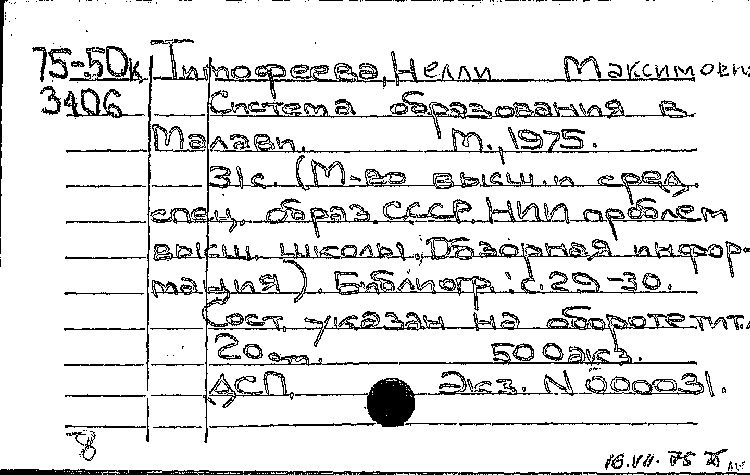 75-50к Тимофеева, Нелли Максимовна
3406 Система образования в
Малави. М., 1975.
31с. (М-во высш. и сред.
спец. образ. СССР. НИИ проблем
высш. школы. Обзорная инфор-
мация). Библиогр.: с.29-30.
Сост. указан на обороте тит.л.
20 000031.
ДСП. Экз. N 000031.
8